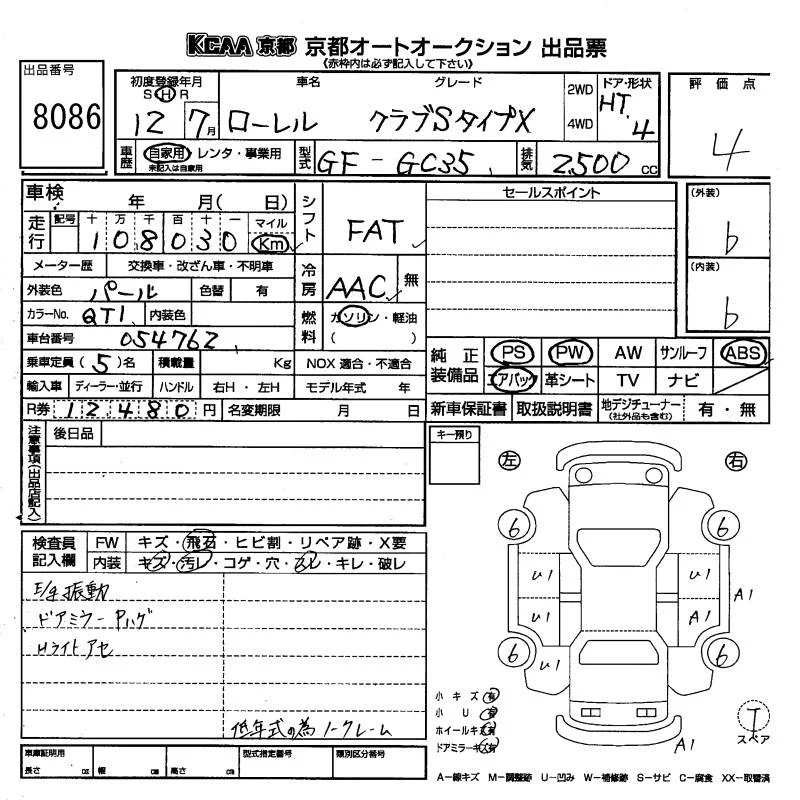 KCAA 京都 京都オートオークション 出品票
《赤枠内は必ず記入して下さい》
出品番号
8086
初度登録年月
S H R
12 7月
車名
ローレル
グレード
クラブSタイプX
2WD
4WD
ドア・形状
HT 4
評価点
4
車歴
自家用・レンタ・事業用
未記入は自家用
型式
GF-GC35
排気
2,500 cc
車検 年 月( 日)
シフト
FAT
セールスポイント
(外装)
b
(内装)
b
走行
記号 十 万 千 百 十 一 マイル
1 0 8 0 3 0 Km
メーター歴 交換車・改ざん車・不明車
冷房
AAC
無
外装色 パール 色替 有
カラーNo. QT1 内装色
燃料
ガソリン・軽油
( )
車台番号 054762
乗車定員 (5)名 積載量 Kg NOX 適合・不適合
輸入車 ディーラー・並行 ハンドル 右H・左H モデル年式 年
R券 12480円 名変期限 月 日
純正装備品
PS PW AW サンルーフ ABS
エアバック 革シート TV ナビ
新車保証書 取扱説明書 地デジチューナー 有・無
(社外品も含む)
注意事項(出品店記入)
後日品
キー預り
左 右
検査員記入欄
FW キズ・飛石・ヒビ割・リペア跡・X要
内装 キズ・汚レ・コゲ・穴・スレ・キレ・破レ
E/g 振動
ドアミラー Pハゲ
Hライトアセ
低年式の為ノークレーム
6 6
U1 U1
U1 A1 A1
6 6
U1
A1
小キズ 有
小U 有
ホイールキズ 有
ドアミラーキズ 有
T
スペア
車庫証明用 型式指定番号 類別区分番号
長さ cm 幅 cm 高さ cm
A−線キズ M−調整跡 U−凹み W−補修跡 S−サビ C−腐食 XX−取替済